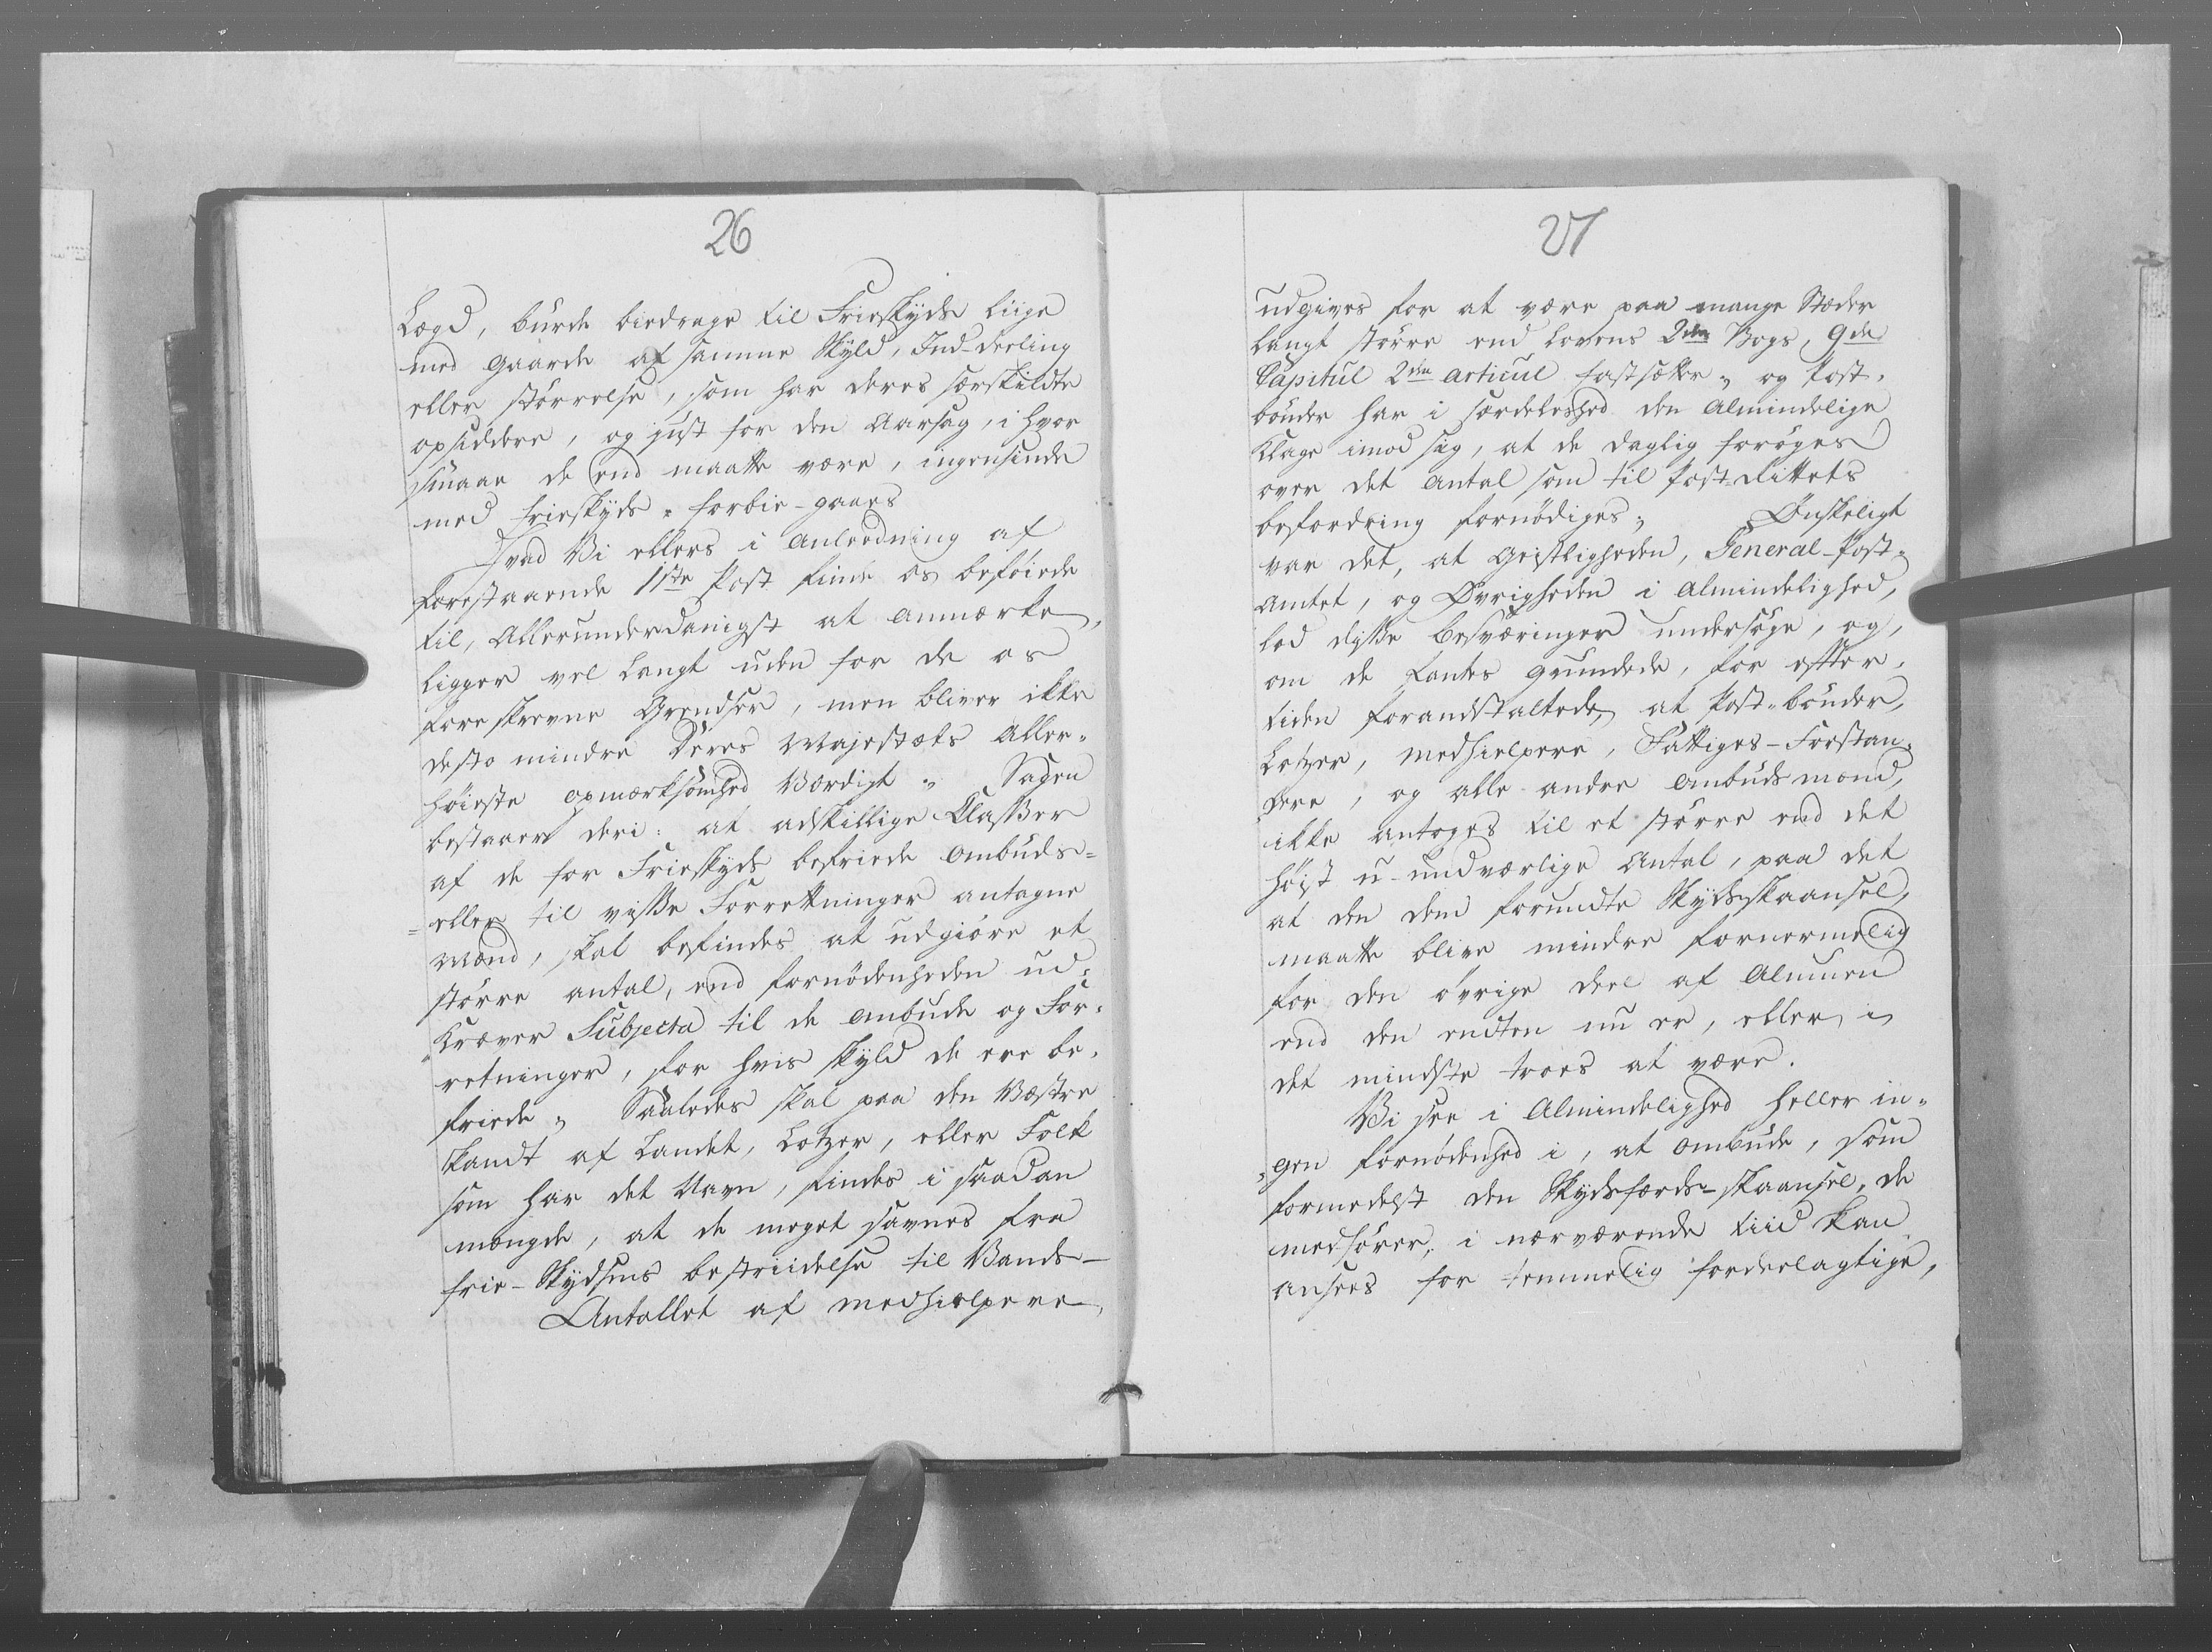 26
Lægd, burde biedrage til Frieskyds liige
med gaarde af samme Skyld, Ind-deeling
eller størrelse, som har deres særskildte
opsiddere, og just for den Aarsag, i hvor
smaae de end maatte være, ingensinde
med frieskyds forbie-gaaes
Hvad Vi ellers i anleedning af
forestaaende 1ste Post finde os beføiede
til, Allerunderdanigst at anmærke,
ligger vel langt uden for de os
foreskrevne Grændser, men bliver ikke
desto mindre Deres Majestæts Aller-
høieste opmærksomhed Værdigt; Sagen
bestaaer deri: at adskillige Classer
af de for Frieskyds befriede ombuds-
=eller til visse Forrettninger antagne
Mænd, skal befindes at udgiøre et
større antal, end fornødenheden ud-
kræver Subjecta til de ombude og For-
retninger, for hvis skyld de ere be-
friede; Saaledes skal paa den Væstre
kandt af Landet, Lotzer, eller Folk
som har det Navn, findes i saadan
mængde, at de meget savnes fra
frie-Skydsens bestriidelse til Vands-
Antallet af medhielpere
27
udgives for at være paa mange Stæder
langt større end Lovens 2den Bogs, 9de
Capitul 2den articul fastsætter; og Post-
bønder har i særdeleshed den Almindelige
Klage imod sig, at de daglig forøges
over det antal som til Post-Rittets
befordring fornødiges; Ønskeligt
var det, at Geistligheden, General-Post-
Amtet, og Øvrigheden i Almindelighed,
lod disse besværinger undersøge, og,
om de fantes grundede, for efter-
tiden forandstaltede, at Post-bønder,
Lotzer, medhielpere, Fattiges-Forstan-
dere, og alle andre ombudsmænd,
ikke antoges til et større end det
høist u-undværlige Antal, paa det
at den dem forundte Skydsskaansel,
maatte blive mindre fornærmelig
for den øvrige deel af Almuen
end den endten nu er, eller i
det mindste troes at være.
Vi see i Almindelighed heller in-
=gen fornødenhed i, at ombude, som
formedelst den Skydsfærds-skaansel, de
medfører, i nærværende tiid kan
ansees for temmelig fordeelagtige,